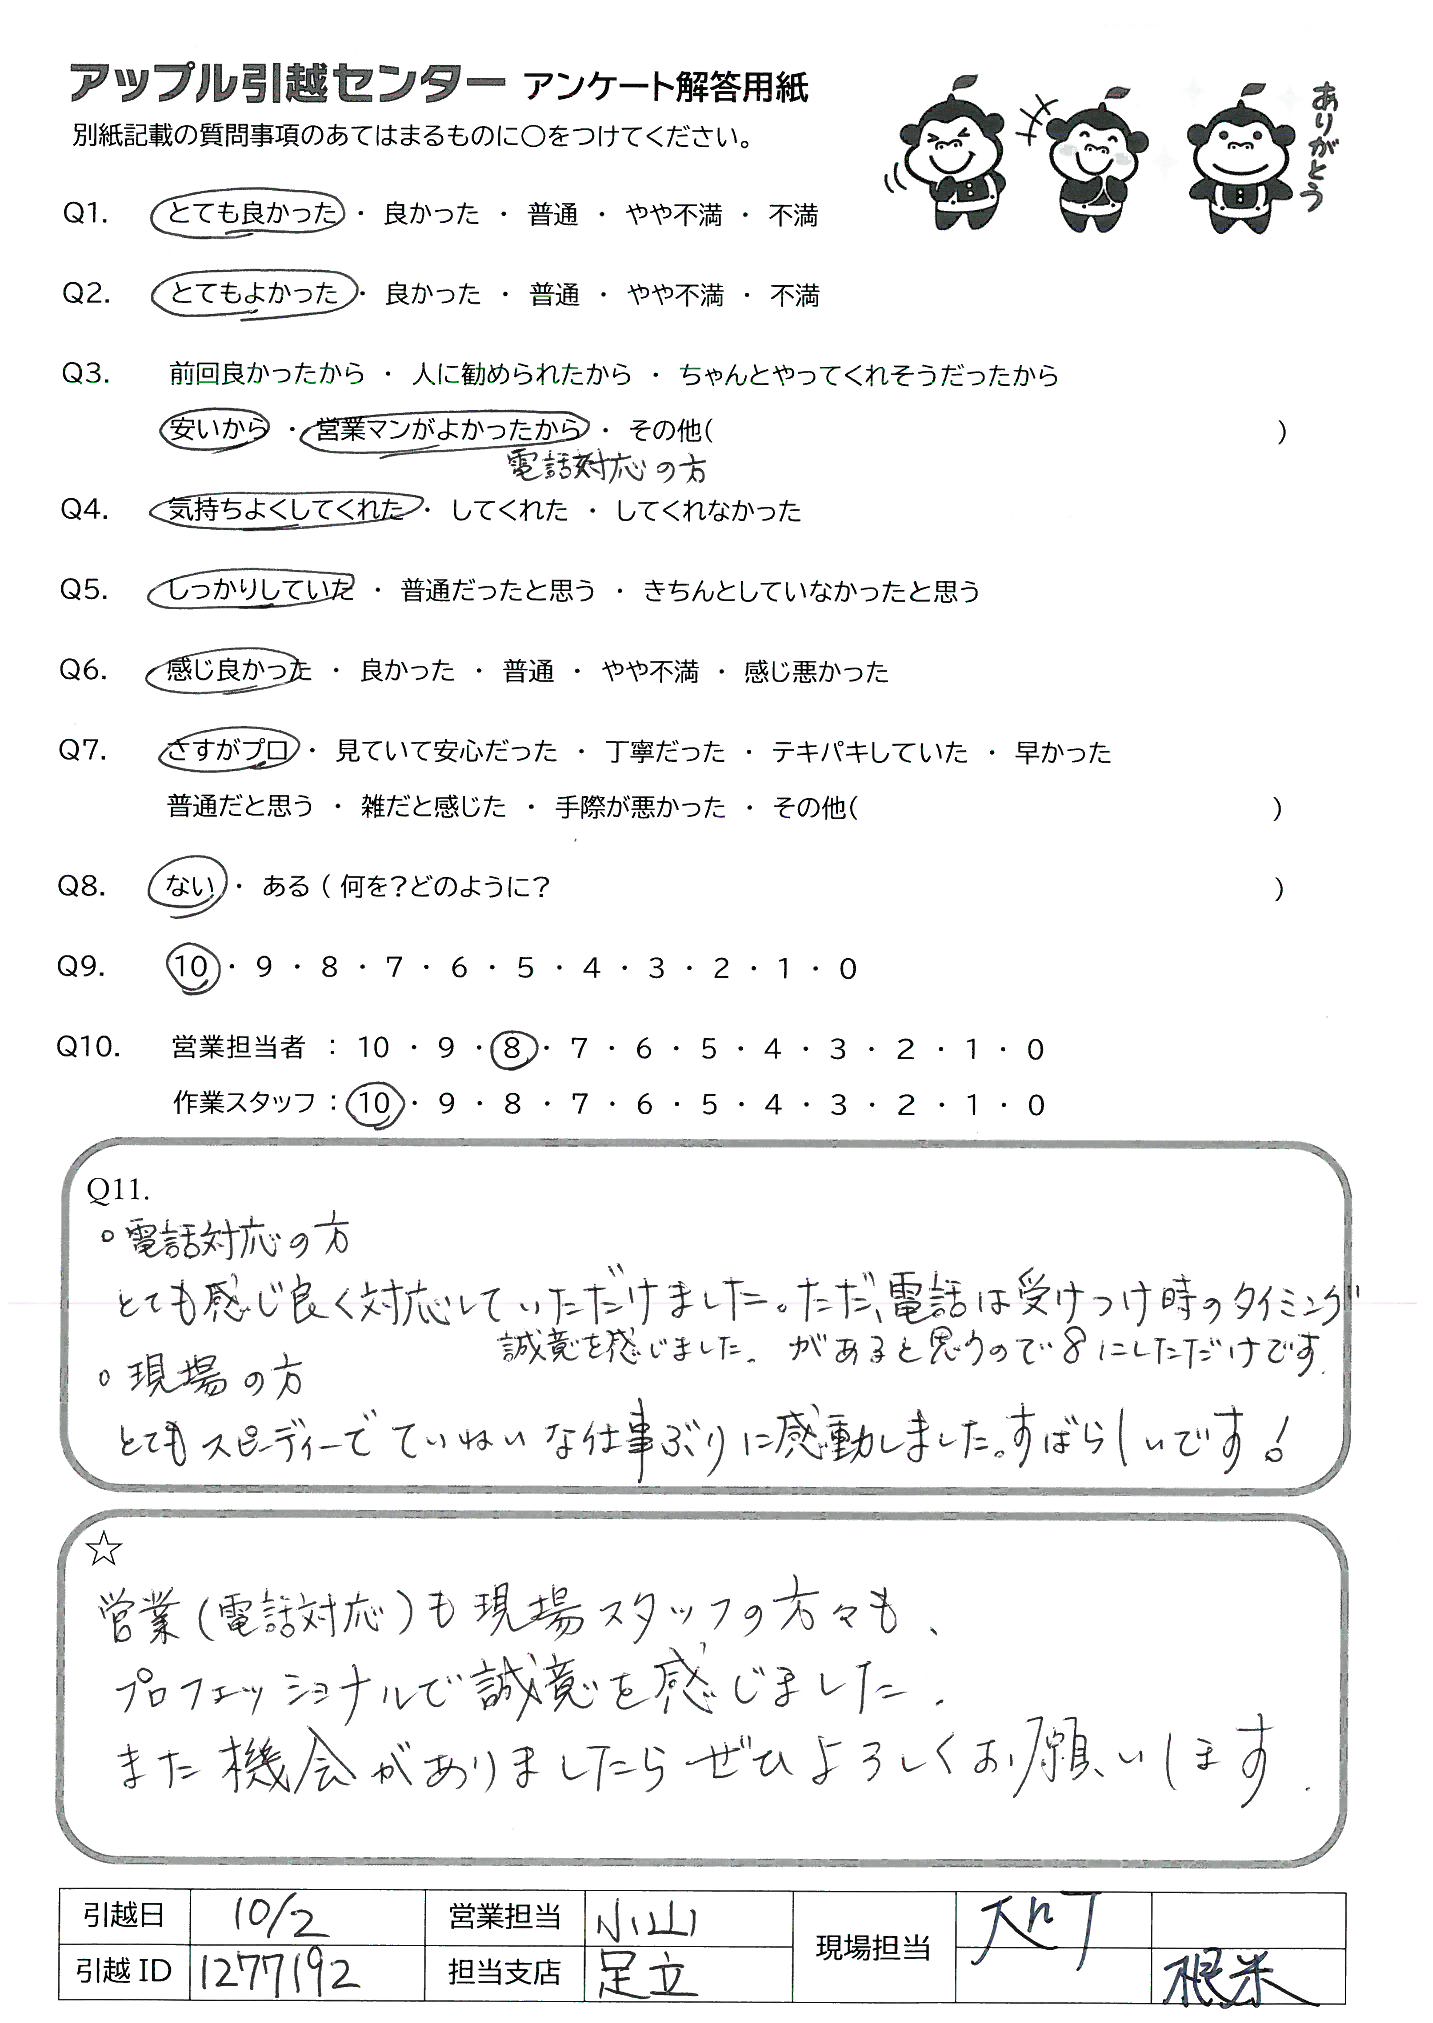 アップル引越センター アンケート解答用紙
別紙記載の質問事項のあてはまるものに〇をつけてください。
ありがとう
Q1. とても良かった ・ 良かった ・ 普通 ・ やや不満 ・ 不満
Q2. とてもよかった ・ 良かった ・ 普通 ・ やや不満 ・ 不満
Q3. 前回良かったから ・ 人に勧められたから ・ ちゃんとやってくれそうだったから
安いから ・ 営業マンがよかったから ・ その他( )
電話対応の方
Q4. 気持ちよくしてくれた ・ してくれた ・ してくれなかった
Q5. しっかりしていた ・ 普通だったと思う ・ きちんとしていなかったと思う
Q6. 感じ良かった ・ 良かった ・ 普通 ・ やや不満 ・ 感じ悪かった
Q7. さすがプロ ・ 見ていて安心だった ・ 丁寧だった ・ テキパキしていた ・ 早かった
普通だと思う ・ 雑だと感じた ・ 手際が悪かった ・ その他( )
Q8. ない ・ ある ( 何を?どのように? )
Q9. 10 ・ 9 ・ 8 ・ 7 ・ 6 ・ 5 ・ 4 ・ 3 ・ 2 ・ 1 ・ 0
Q10. 営業担当者 : 10 ・ 9 ・ 8 ・ 7 ・ 6 ・ 5 ・ 4 ・ 3 ・ 2 ・ 1 ・ 0
作業スタッフ : 10 ・ 9 ・ 8 ・ 7 ・ 6 ・ 5 ・ 4 ・ 3 ・ 2 ・ 1 ・ 0
Q11.
○電話対応の方
とても感じ良く対応していただけました。ただ、電話は受けつけ時のタイミング
誠意を感じました。 があると思うので8にしただけです。
○現場の方
とてもスピーディーでていねいな仕事ぶりに感動しました。すばらしいです!
☆
営業(電話対応)も現場スタッフの方々も、
プロフェッショナルで誠意を感じました。
また機会がありましたらぜひよろしくお願いします。
引越日 10/2 営業担当 小山 現場担当
引越ID 1277192 担当支店 足立 根米